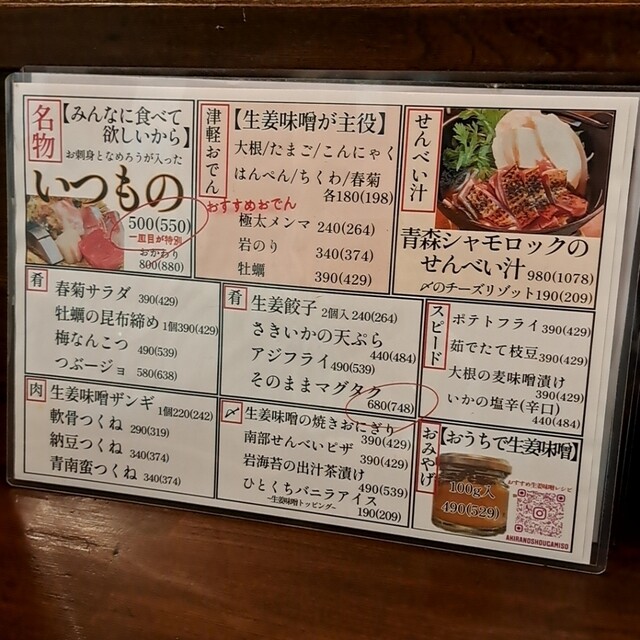 名物
【みんなに食べて
欲しいから】
お刺身となめろうが入った
いつもの
500(550)
一皿目が特別
おかわり
800(880)
津軽おでん
【生姜味噌が主役】
大根/たまご/こんにゃく
はんぺん/ちくわ/春菊
各180(198)
おすすめおでん
極太メンマ 240(264)
岩のり 340(374)
牡蠣 390(429)
せんべい汁
青森シャモロックの
せんべい汁 980(1078)
〆のチーズリゾット190(209)
肴
春菊サラダ 390(429)
牡蠣の昆布締め 1個390(429)
梅なんこつ 490(539)
つぶージョ 580(638)
肴
生姜餃子 2個入 240(264)
さきいかの天ぷら
440(484)
アジフライ 490(539)
そのままマグタク
680(748)
スピード
ポテトフライ 390(429)
茹でたて枝豆 390(429)
大根の麦味噌漬け
390(429)
いかの塩辛(辛口)
440(484)
肉
生姜味噌ザンギ 1個220(242)
軟骨つくね 290(319)
納豆つくね 340(374)
青南蛮つくね 340(374)
〆
生姜味噌の焼きおにぎり
390(429)
南部せんべいピザ 390(429)
岩海苔の出汁茶漬け
490(539)
ひとくちバニラアイス
~生姜味噌トッピング~
190(209)
おみやげ
【おうちで生姜味噌】
100g入
490(529)
おすすめ生姜味噌レシピ
AHIRANOSHOUGAMISO